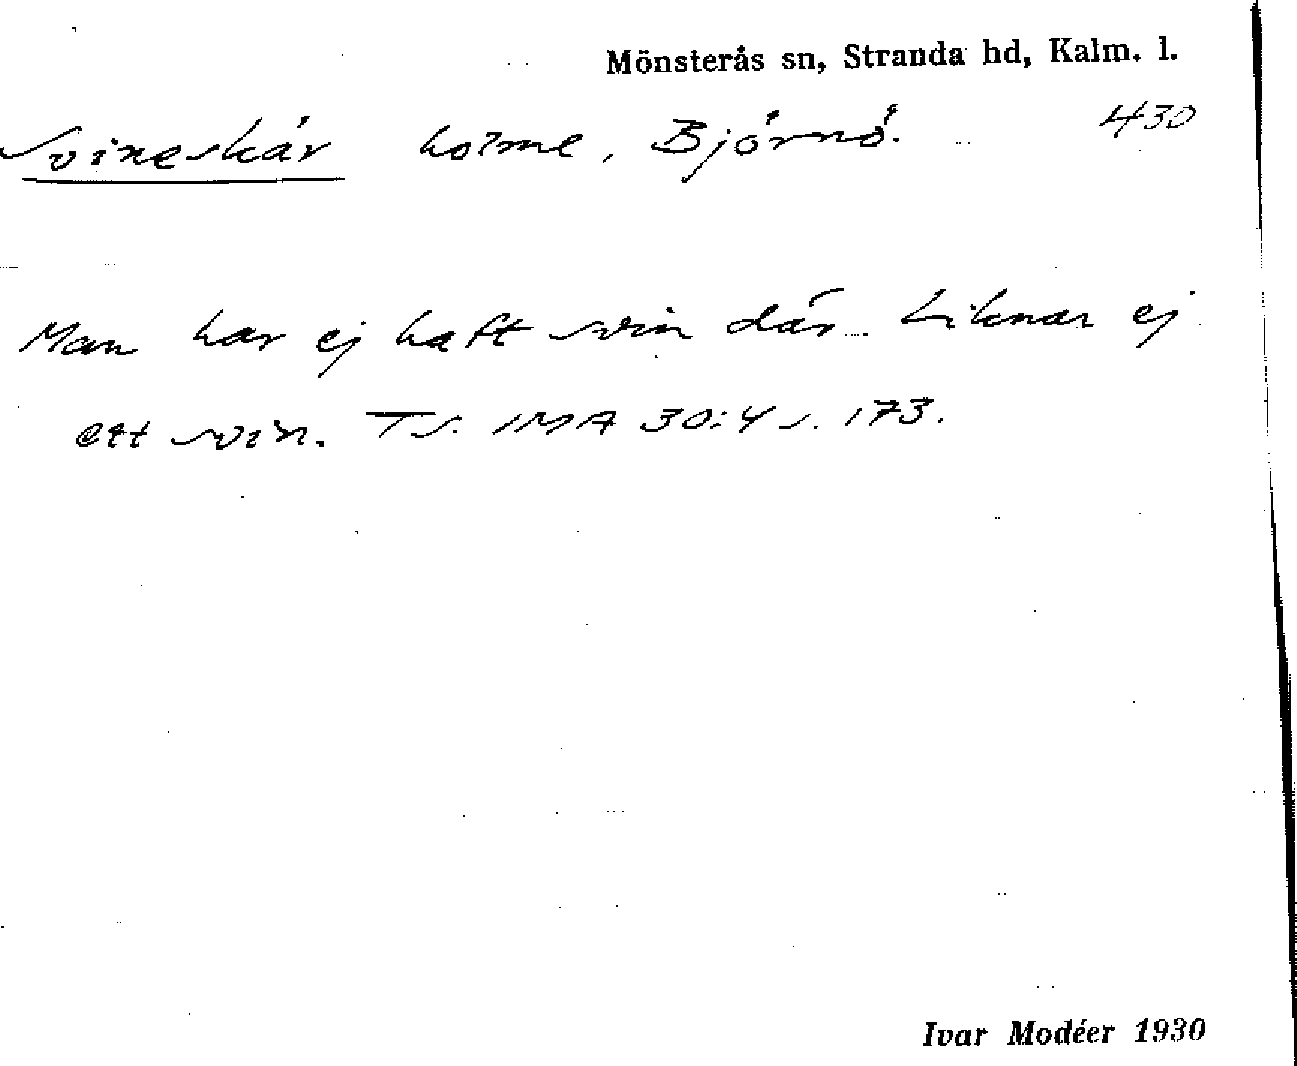 Mönsterås sn, Stranda hd, Kalm. l.
Svineskär holme, Björnö. 430
Man har ej haft svin där. Liknar ej
ett svin. TS. IMA 30:4 s. 173.
Ivar Modéer 1930